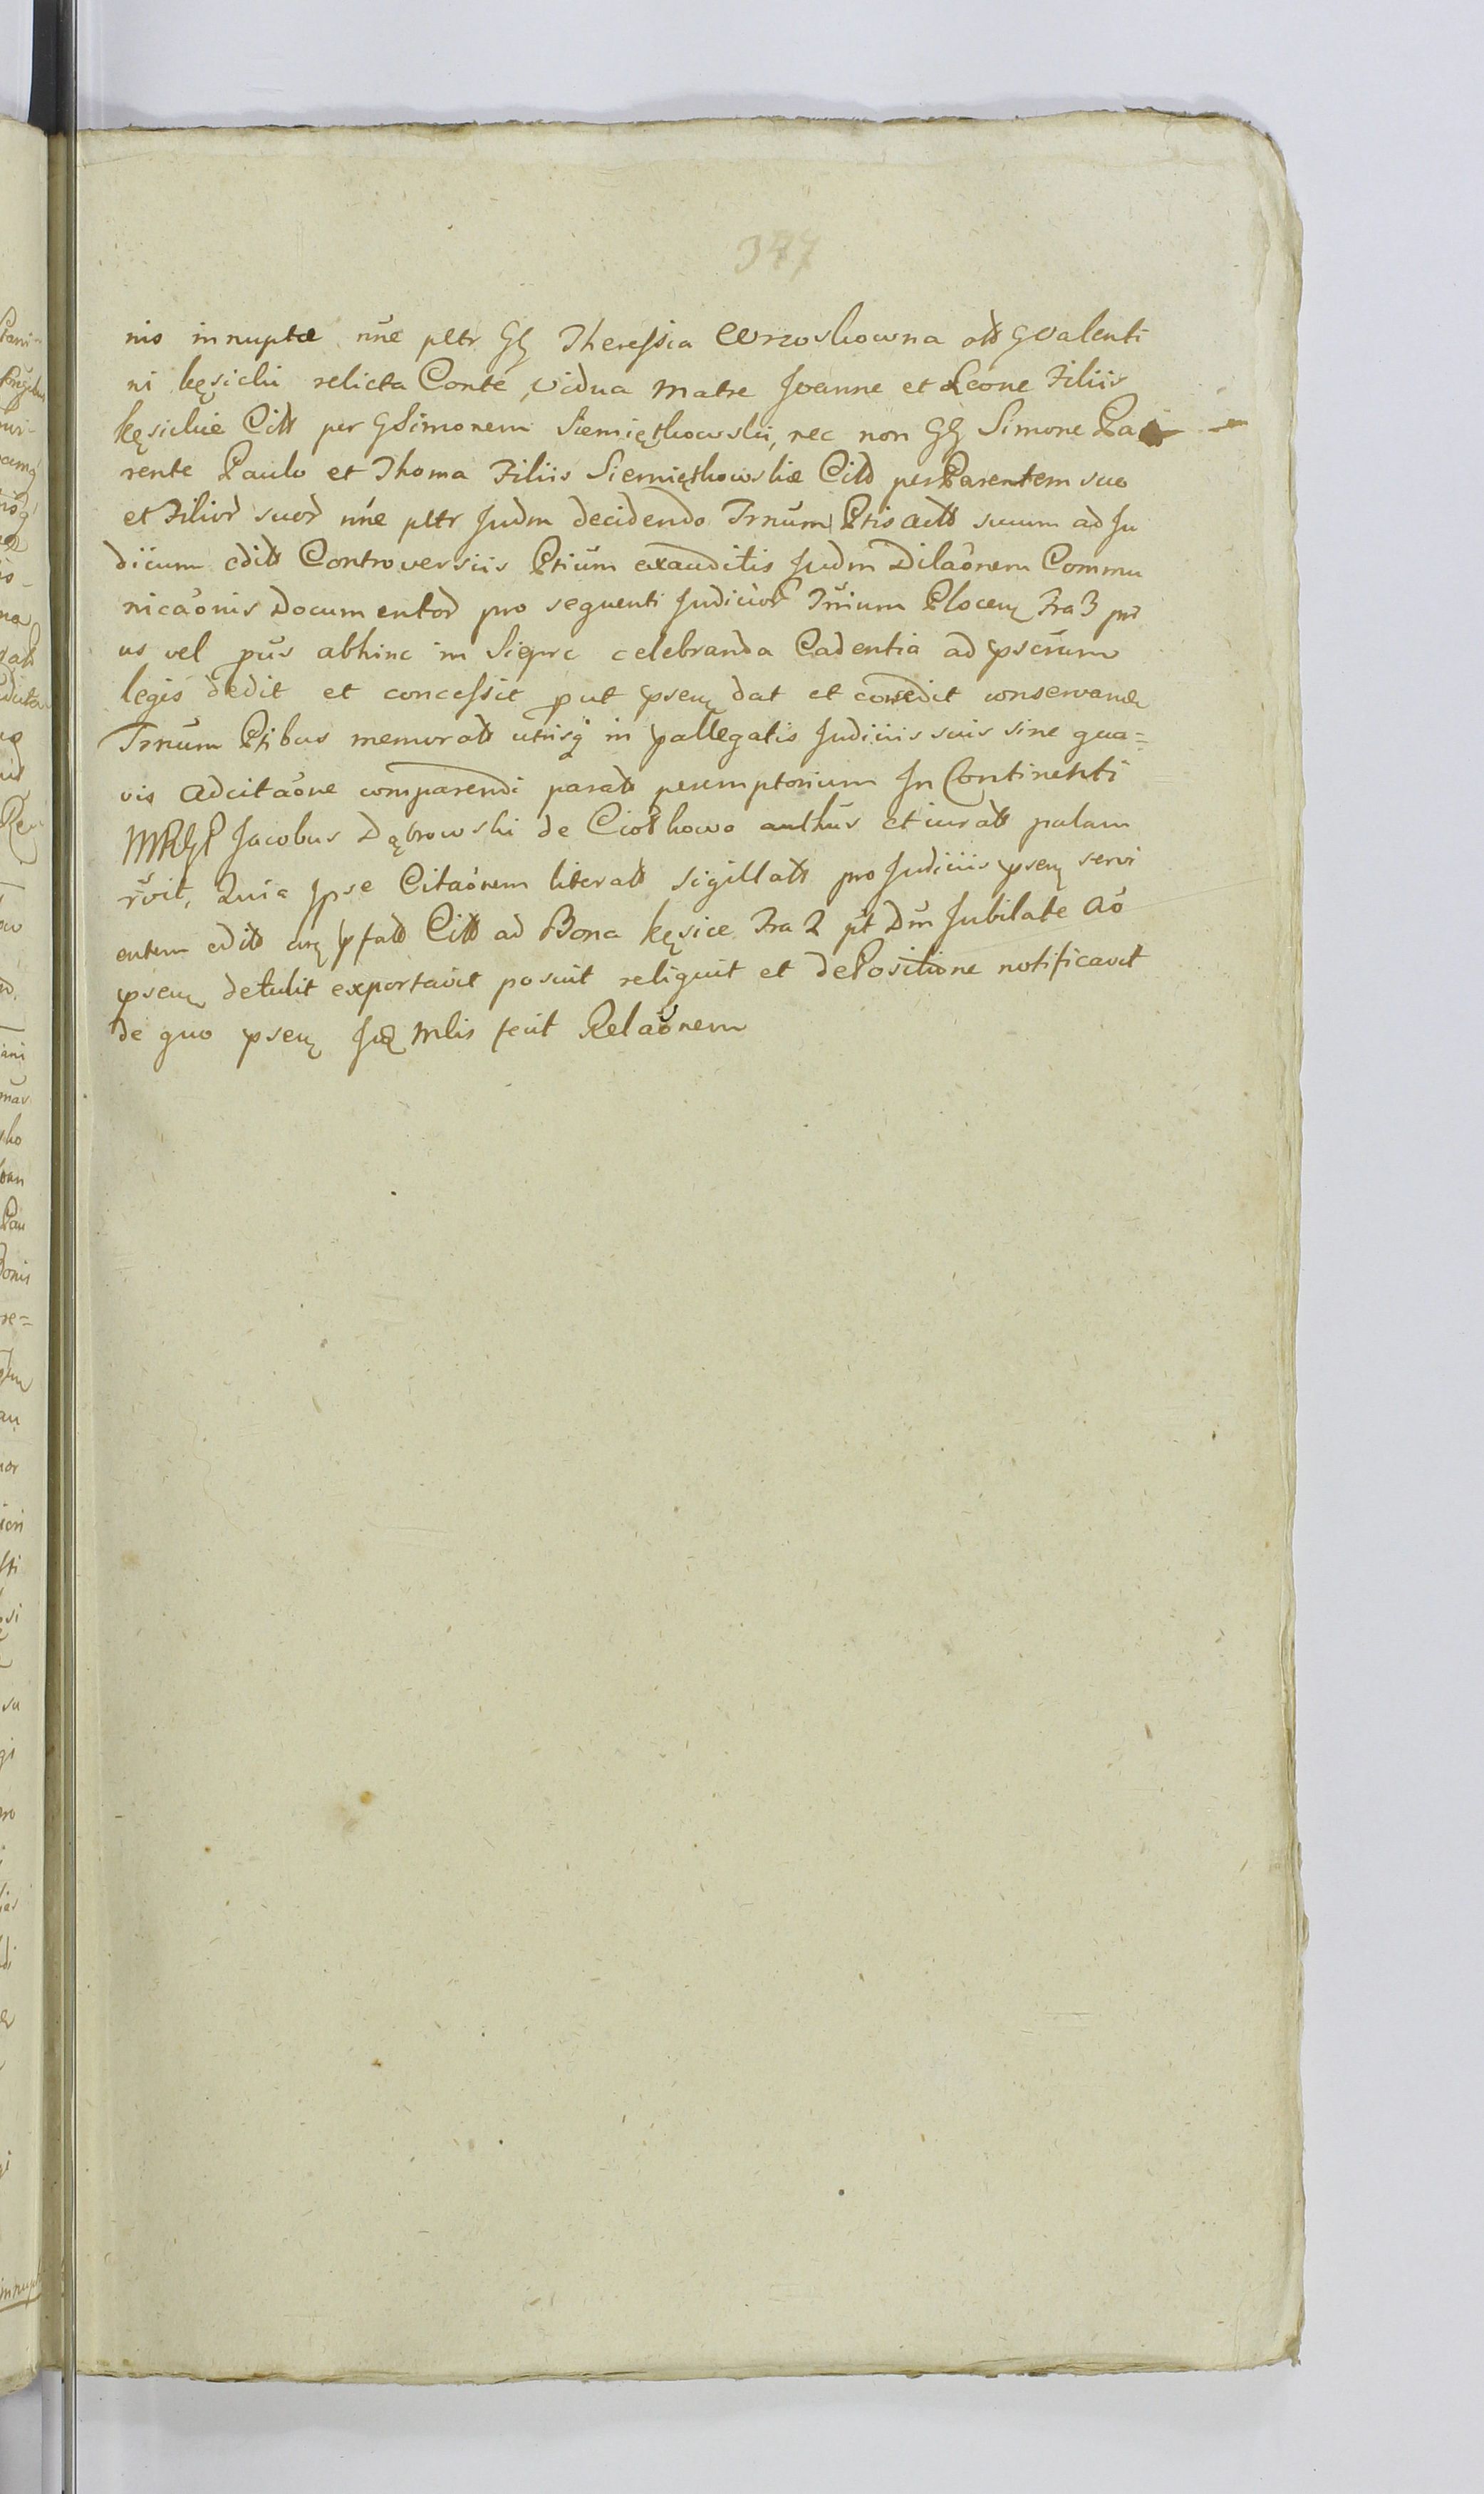 377
nis innuptae nne pltr GG Theressia Wrzoskowna ott GValenti
ni Kęsicki relicta Conte, Vidua Matre Joanne et Leone Filiis
Kęsickie Citt per GSimonem Siemiętkowski, nec non GG Simone Pa
rente Paulo et Thoma Filiis Siemiętkowskie Citt per Parentem suo
et Filior suor nne pltr Judm decidendo Trnum Ptis Actt suum ad Ju
dicium edits Controversiis Ptium exauditis Judm Dilaonem Commu
nicaonis Documentor pro sequenti Judicior Trium Plocen Fra 3 pri
us vel pus abhinc in Sieprc celebranda Cadentia ad pscrum
legis dedit et concessit put psen dat et concedit conservando
Trnum Ptibus memoratt utrisq in pallegatis Judiciis suis sine qua=
vis Adcitaone comparendi paratt peremptorium In Continenti
MRGP Jacobus Dąbrowski de Ciołkowo authus et iuratt palam
rvit, Quia Ipse Citaonem literatt sigillatt pro Judiciis psen servi
entem edits pfatt Citt ad Bona Kęsice Fra 2 pt Dm Jubilate Ao
psen detulit exportavit posuit reliquit et de Positione notificavit
de quo psen Jud Mlis fecit Relaonem